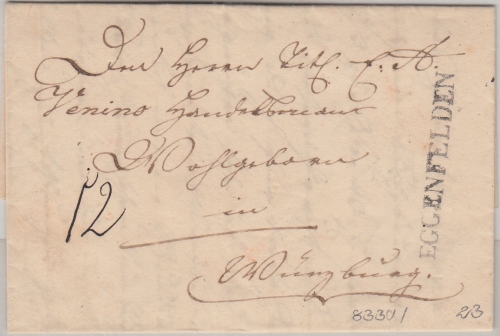 Dem Herrn Titl. C. A.
Venino Handelsmann
Wohlgeboren
in
Würzburg.
12
EGGENFELDEN
83301
213